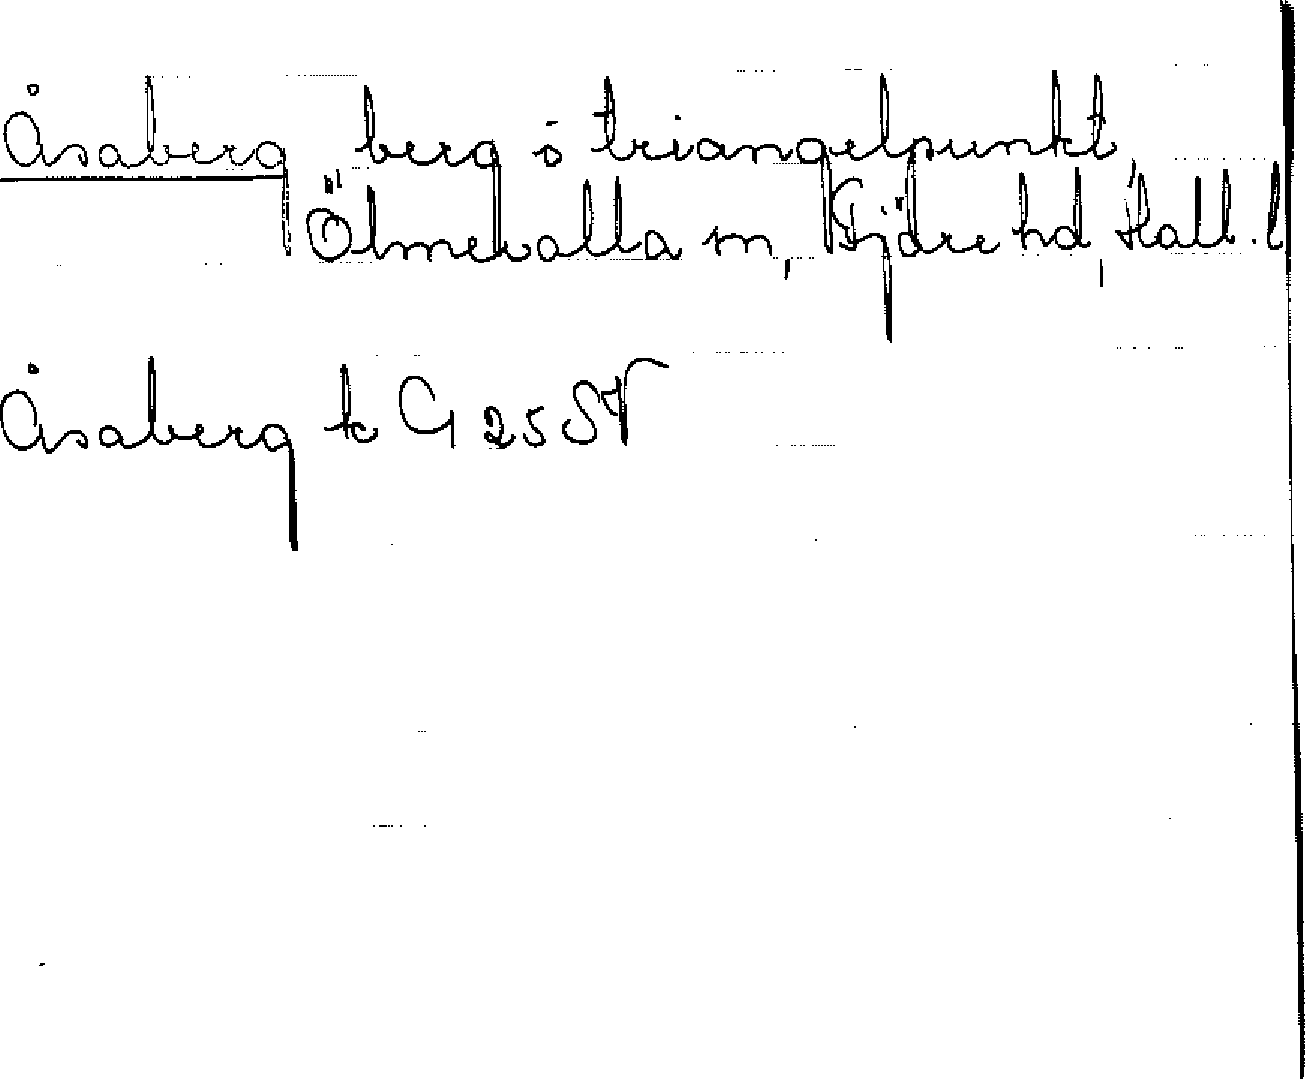 Åsaberg berg o triangelpunkt,
Ölmevalla sn, Fjäre hd, Hall. l
Åsaberg k G 25 SV